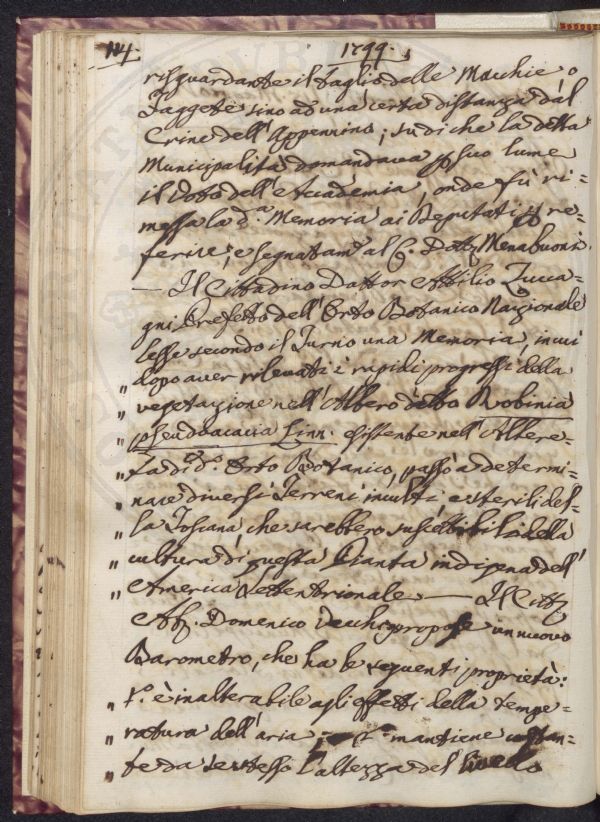 114 1799.
risguardante il taglio delle Macchie o
Faggete sino ad una certa distanza dal
Crine dell'Appennino; su di che la detta
Municipalità domandava p suo lume
il Voto dell'Accademia, onde fù ri=
messa la d.ª Memoria ai Deputati p re=
ferire; e segnatam.e al C. Dott. Menabuoni.
— Il Cittadino Dottor Attilio Zucca=
gni Prefetto dell'Orto Botanico Nazionale
lesse secondo il Turno una Memoria, in cui
" dopo aver rilevati i rapidi progressi della
" vegetazione nell'Albero detto Robinia
" pseudoacacia Linn. esistente nell'Albere=
" ta di d.º Orto Botanico, passò a determi=
" nare diversi Terreni inculti e sterili del=
" la Toscana che sarebbero suscettibili della
" cultura di questa Pianta indigena dell'
" America Settentrionale — Il Citt.
Ab. Domenico Vecchi propose un nuovo
Barometro, che ha le seguenti proprietà:
" 1.º è inalterabile agli effetti della tempe=
" ratura dell'aria: 2.º mantiene costan=
" te da se stesso l'altezza del livello